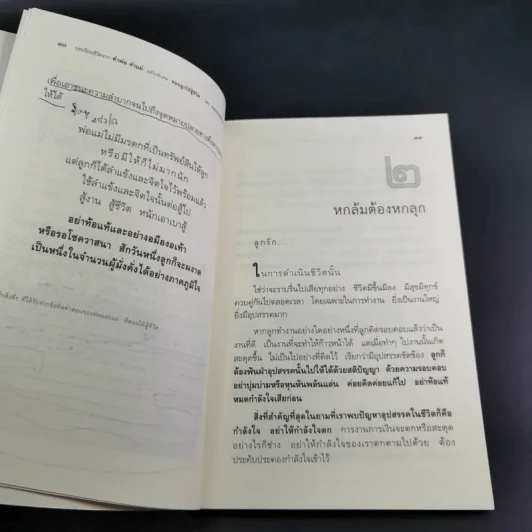 ๑๐ บทเรียนชีวิตจาก คำพ่อ คำแม่
เพื่อเอาชนะความลำบากจนไปถึงจุดหมายปลายทาง
ให้ได้
พ่อแม่ไม่มีมรดกที่เป็นทรัพย์สินให้ลูก
หรือมีให้ก็ไม่มากนัก
แต่ลูกก็ได้ลำแข้งและจิตใจไว้พร้อมแล้ว
ใช้ลำแข้งและจิตใจนั้นต่อสู้ไป
สู้งาน สู้ชีวิต หนักเอาเบาสู้
อย่าท้อแท้และอย่างอมืองอเท้า
หรือรอโชควาสนา สักวันหนึ่งลูกก็จะผงาด
เป็นหนึ่งในจำนวนผู้มั่งคั่งได้อย่างภาคภูมิใจ
๑๑
๒
หกล้มต้องหกลุก
ลูกรัก
ในการดำเนินชีวิตนั้น
ใช่ว่าจะราบรื่นไปเสียทุกอย่าง ชีวิตมีขึ้นมีลง มีสุขมีทุกข์
ควบคู่กันไปตลอดเวลา โดยเฉพาะในการทำงาน ยิ่งเป็นงานใหญ่
ยิ่งมีอุปสรรคมาก
หากลูกทำงานอย่างใดอย่างหนึ่งที่ลูกคิดรอบคอบแล้วว่าเป็น
งานที่ดี เป็นงานที่จะทำให้ก้าวหน้าได้ แต่เมื่อทำๆ ไปงานนั้นเกิด
สะดุดขึ้น ไม่เป็นไปอย่างที่คิดไว้ เรียกว่ามีอุปสรรคขัดข้อง ลูกก็
ต้องฟันฝ่าอุปสรรคนั้นไปให้ได้ด้วยสติปัญญา ด้วยความรอบคอบ
อย่าบุ่มบ่ามหรือหุนหันพลันแล่น ค่อยคิดค่อยแก้ไป อย่าท้อแท้
หมดกำลังใจเสียก่อน
สิ่งที่สำคัญที่สุดในยามที่เราพบปัญหาอุปสรรคในชีวิตก็คือ
กำลังใจ อย่าให้กำลังใจตก การงานการเงินจะตกหรือสะดุด
อย่างไรก็ช่าง อย่าให้กำลังใจของเราตกตามไปด้วย ต้อง
ประคับประคองกำลังใจเข้าไว้